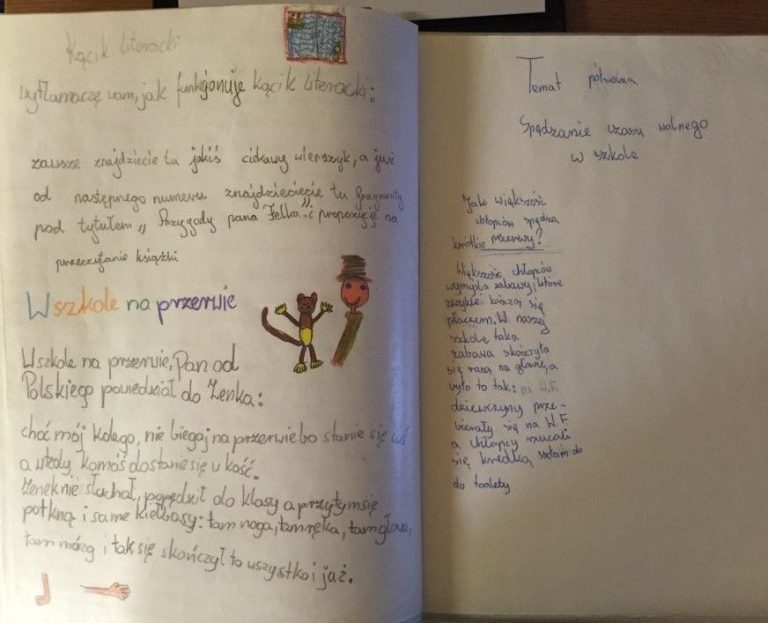 Kącik literacki
wytłumaczę wam, jak funkjonuje kącik literacki:
zawsze znajdziecie tu jakiś ciekawy wierszyk, a już
od następnego numeru znajdzieciecie tu fragmenty
pod tytułem „Przygody pana Felka" i propozycję na
przeczytanie książki
W szkole na przerwie
W szkole na przerwie, Pan od
Polskiego powiedział do Zenka:
choć mój kolego, nie biegaj na przerwie bo stanie się
a wtedy komóś dostanie się w kość.
Zenek nie słuchał, popędził do klasy a przytym się
potkną i same kiełbasy: tam noga, tam ręka, tam głowa,
tam mózg i tak się skończył to wszystko i już.
Temat
Spędzanie czasu wolnego
w szkole
Jak większość
chłopców spędza
krótkie przerwy?
Większość chłopców
wymyśla zabawy, które
zwykle kończą się
płaczem. W naszej
szkole taka
zabawa skończyła
się raną na głowie, a
było to tak:
dziewczyny prze-
bierały się na W.F
a chłopcy rzucali
się kredką do
do toalety